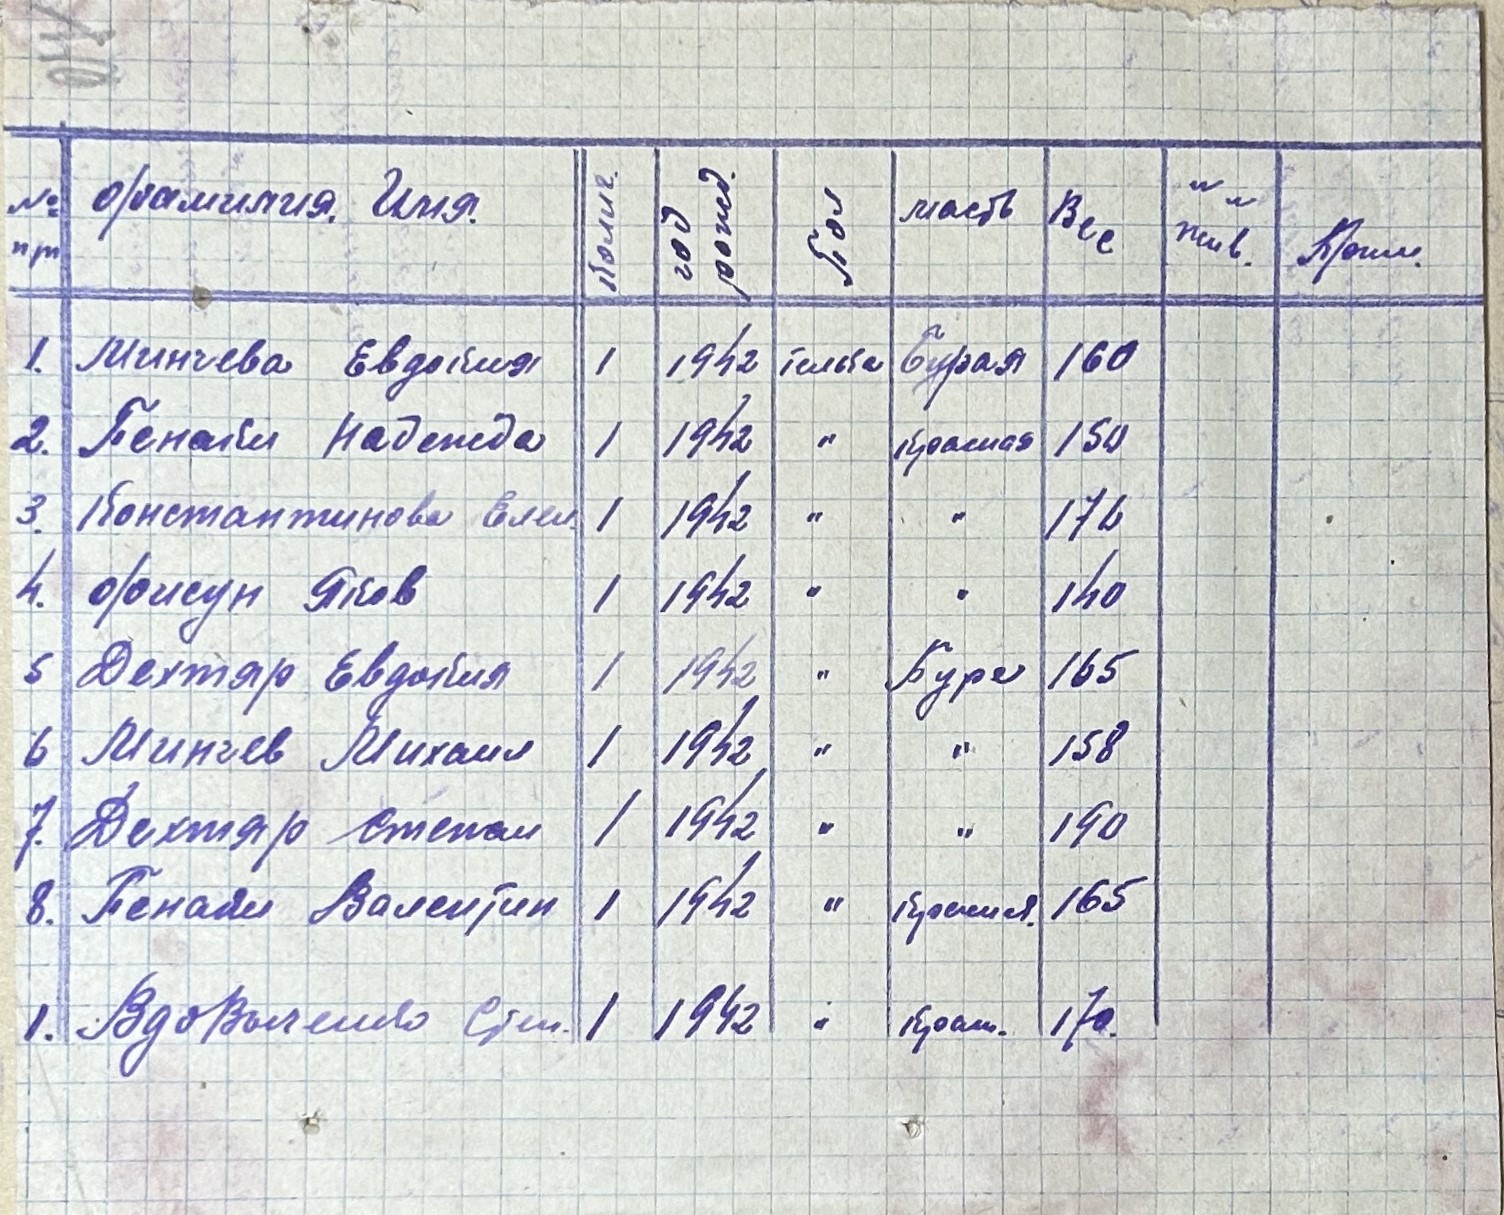 № пп Фамилия, Имя. Колич. год рожд. Пол масть Вес №№ жив. Прим.
1. Минчева Евдокия 1 1942 телка Бурая 160
2. Генали Надежда 1 1942 " Красная 150
3. Константинова Елен. 1 1942 " " 176
4. Фисун Яков 1 1942 " " 140
5 Дехтяр Евдокия 1 1942 " Бура 165
6 Минчев Михаил 1 1942 " " 158
7. Дехтяр Степан 1 1942 " " 190
8. Генали Валентин 1 1942 " Красная. 165
1. Вдовыченко Степ. 1 1942 " Крас. 170.